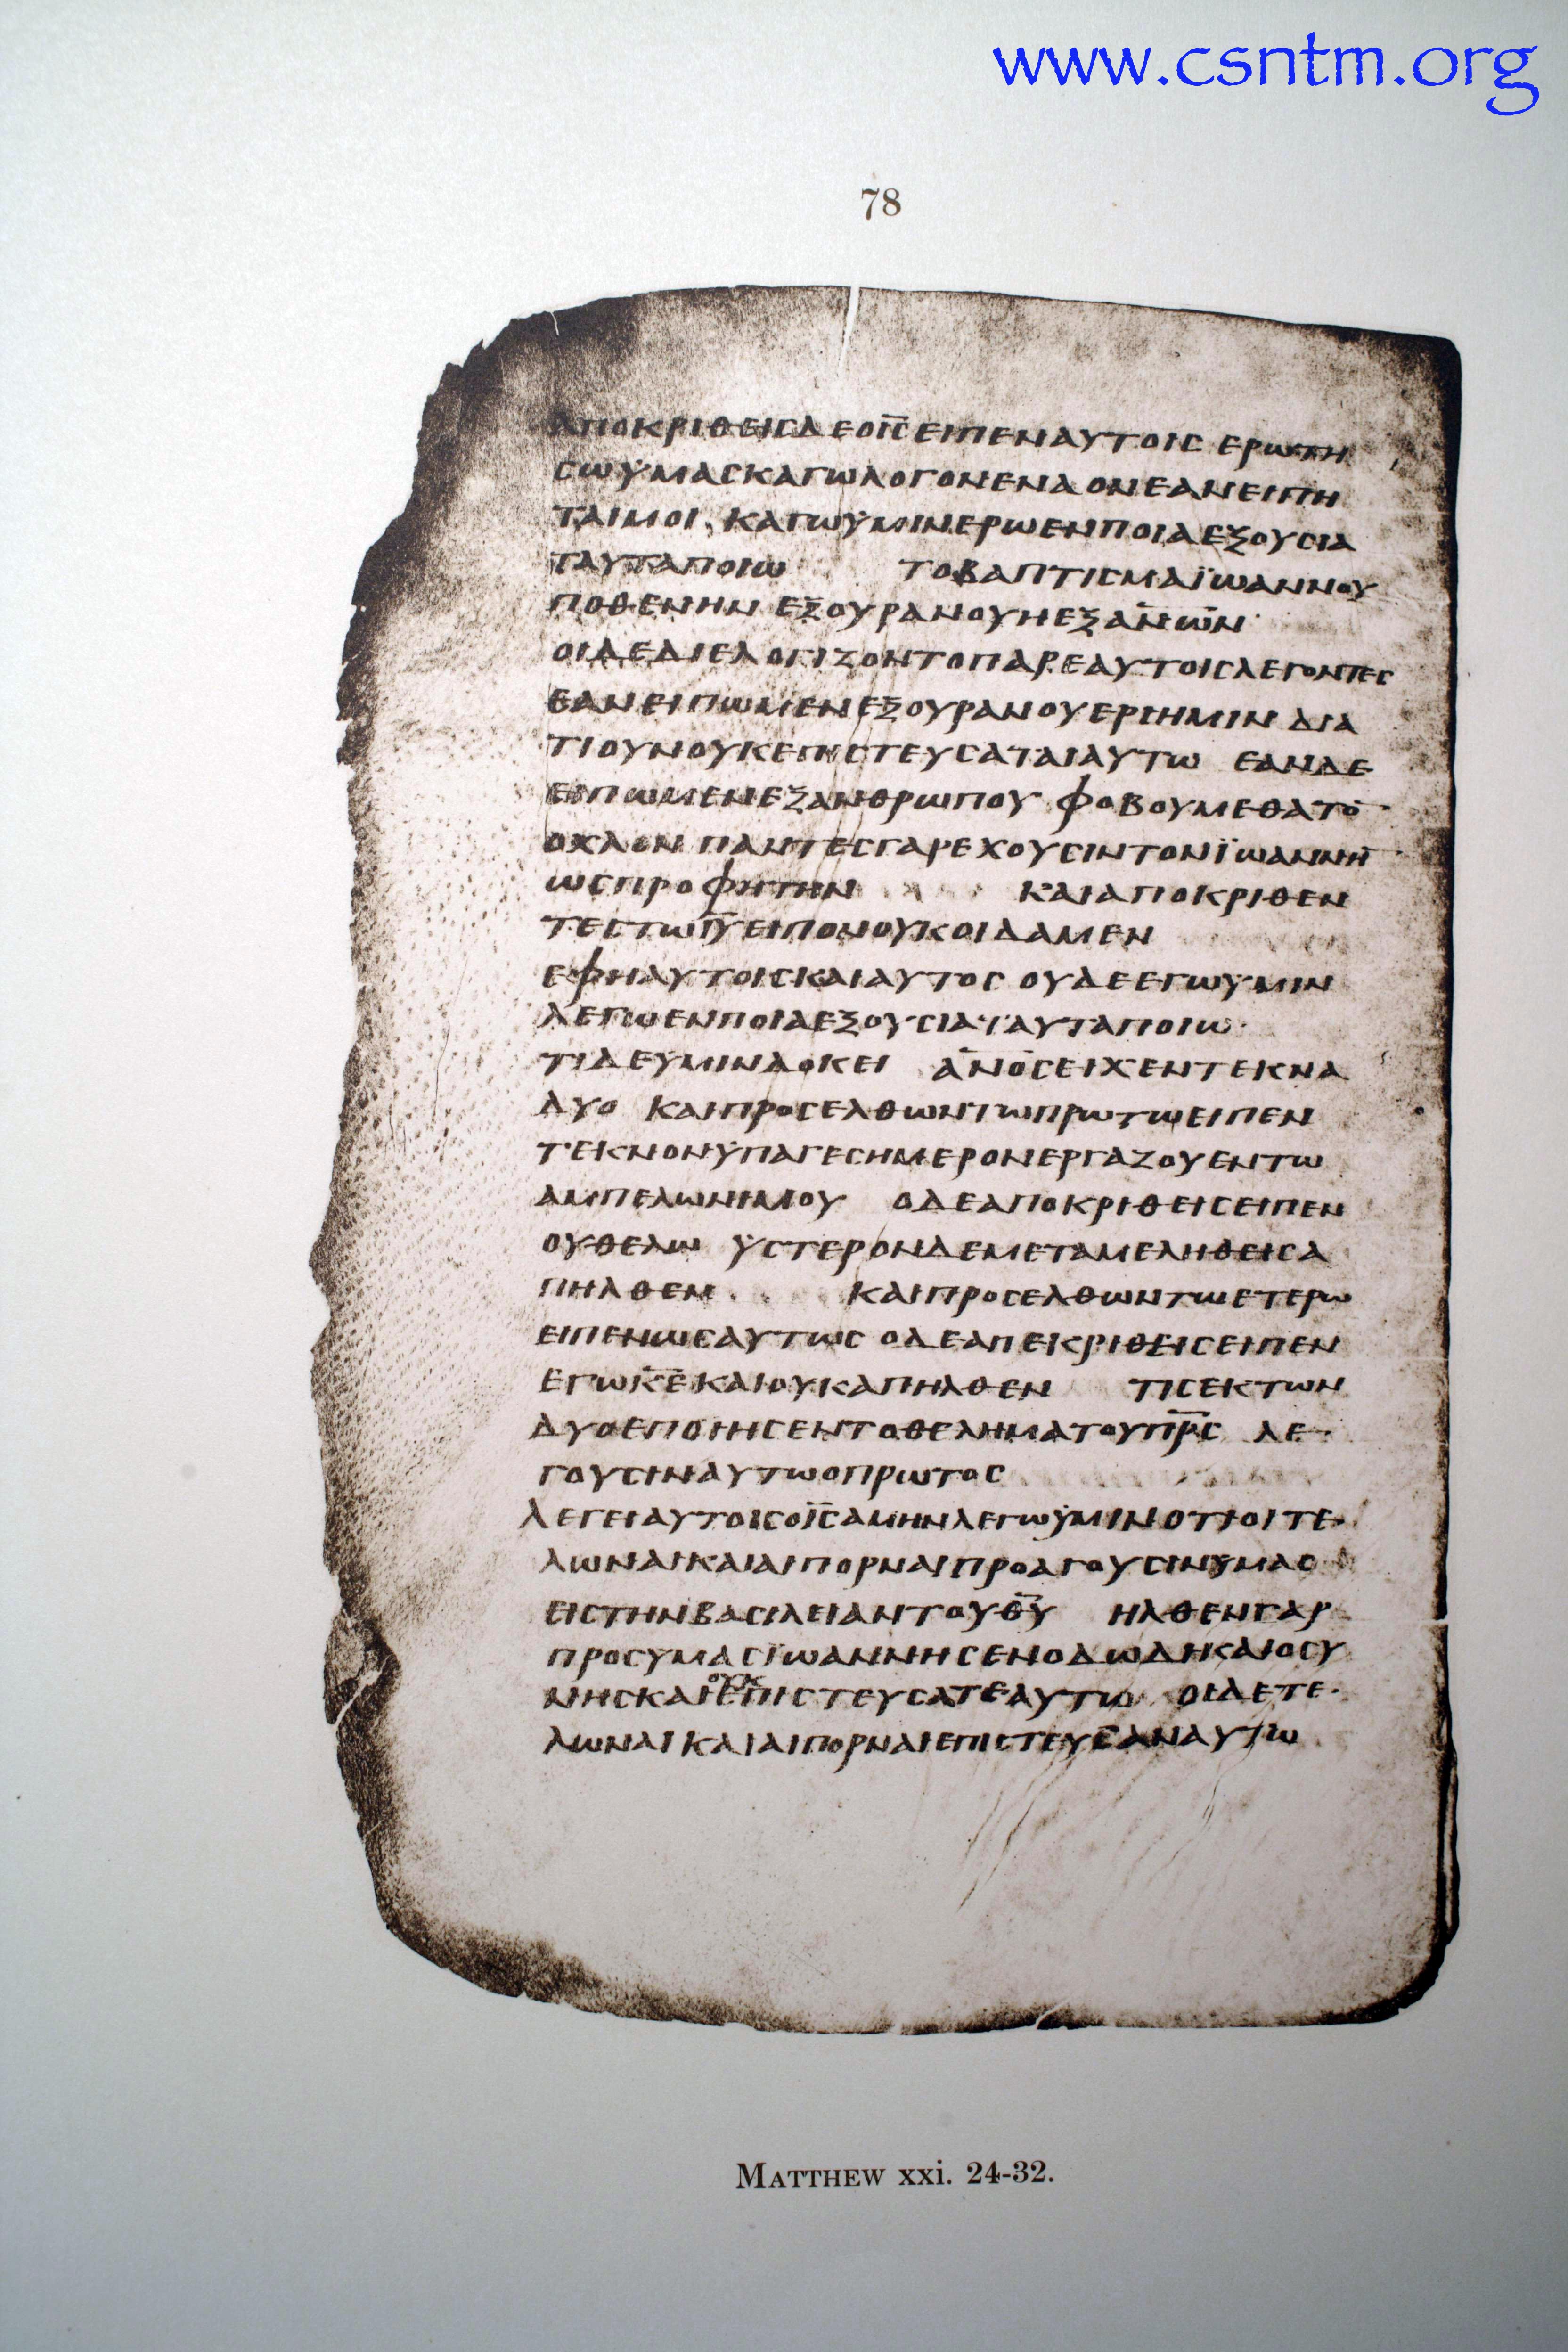 www.csntm.org
78
ΑΠΟΚΡΙΘΕΙCΔΕΟΙ̅C̅ΕΙΠΕΝΑΥΤΟΙC ΕΡΩΤΗ
CΩΫΜΑCΚΑΓΩΛΟΓΟΝΕΝΑΟΝΕΑΝΕΙΠΗ
ΤΑΙΜΟΙ ΚΑΓΩΫΜΙΝΕΡΩΕΝΠΟΙΑΕΞΟΥCΙΑ
ΤΑΥΤΑΠΟΙΩ ΤΟΒΑΠΤΙCΜΑΪΩΑΝΝΟΥ
ΠΟΘΕΝΗΝ ΕΞΟΥΡΑΝΟΥΗΕΞΑ̅Ν̅Ω̅Ν̅
ΟΙΔΕΔΙΕΛΟΓΙΖΟΝΤΟΠΑΡΕΑΥΤΟΙCΛΕΓΟΝΤΕC
ΕΑΝΕΙΠΩΜΕΝΕΞΟΥΡΑΝΟΥΕΡΙΗΜΙΝ ΔΙΑ
ΤΙΟΥΝΟΥΚΕΠΙCΤΕΥCΑΤΑΙΑΥΤΩ ΕΑΝΔΕ
ΕΙΠΩΜΕΝΕΞΑΝΘΡΩΠΟΥ ΦΟΒΟΥΜΕΘΑΤΟ̅
ΟΧΛΟΝ ΠΑΝΤΕCΓΑΡΕΧΟΥCΙΝΤΟΝΪΩΑΝΝΗ̅
ΩCΠΡΟΦΗΤΗΝ ΚΑΙΑΠΟΚΡΙΘΕΝ
ΤΕCΤΩΙ̅Υ̅ΕΙΠΟΝΟΥΚΟΙΔΑΜΕΝ
ΕΦΗΑΥΤΟΙCΚΑΙΑΥΤΟC ΟΥΔΕΕΓΩΫΜΙΝ
ΛΕΓΩΕΝΠΟΙΑΕΞΟΥCΙΑΤΑΥΤΑΠΟΙΩ
ΤΙΔΕΫΜΙΝΔΟΚΕΙ Α̅Ν̅Ο̅C̅ΕΙΧΕΝΤΕΚΝΑ
ΔΥΟ ΚΑΙΠΡΟCΕΛΘΩΝΤΩΠΡΩΤΩΕΙΠΕΝ
ΤΕΚΝΟΝΫΠΑΓΕCΗΜΕΡΟΝΕΡΓΑΖΟΥΕΝΤΩ
ΑΜΠΕΛΩΝΙΜΟΥ ΟΔΕΑΠΟΚΡΙΘΕΙCΕΙΠΕΝ
ΟΥΘΕΛΩ ΫCΤΕΡΟΝΔΕΜΕΤΑΜΕΛΗΘΕΙCΑ
ΠΗΛΘΕΝ ΚΑΙΠΡΟCΕΛΘΩΝΤΩΕΤΕΡΩ
ΕΙΠΕΝΩCΑΥΤΩC ΟΔΕΑΠΕΚΡΙΘΕΙCΕΙΠΕΝ
ΕΓΩΚ̅Ε̅ΚΑΙΟΥΚΑΠΗΛΘΕΝ ΤΙCΕΚΤΩΝ
ΔΥΟΕΠΟΙΗCΕΝΤΟΘΕΛΗΜΑΤΟΥΠ̅Ρ̅C̅ ΛΕ
ΓΟΥCΙΝΑΥΤΩΟΠΡΩΤΟC
ΛΕΓΕΙΑΥΤΟΙCΟΙ̅C̅ΑΜΗΝΛΕΓΩΫΜΙΝΟΤΙΟΙΤΕ
ΛΩΝΑΙΚΑΙΑΙΠΟΡΝΑΙΠΡΟΑΓΟΥCΙΝΥΜΑC
ΕΙCΤΗΝΒΑCΙΛΕΙΑΝΤΟΥΘ̅Υ̅ ΗΛΘΕΝΓΑΡ
ΠΡΟCΥΜΑCΪΩΑΝΝΗCΕΝΟΔΩΔΗΚΑΙΟCΥ
ΝΗCΚΑΙΟΥΚΕΠΙCΤΕΥCΑΤΕΑΥΤΩ ΟΙΔΕΤΕ
ΛΩΝΑΙΚΑΙΑΙΠΟΡΝΑΙΕΠΙCΤΕΥCΑΝΑΥΤΩ
MATTHEW xxi. 24-32.